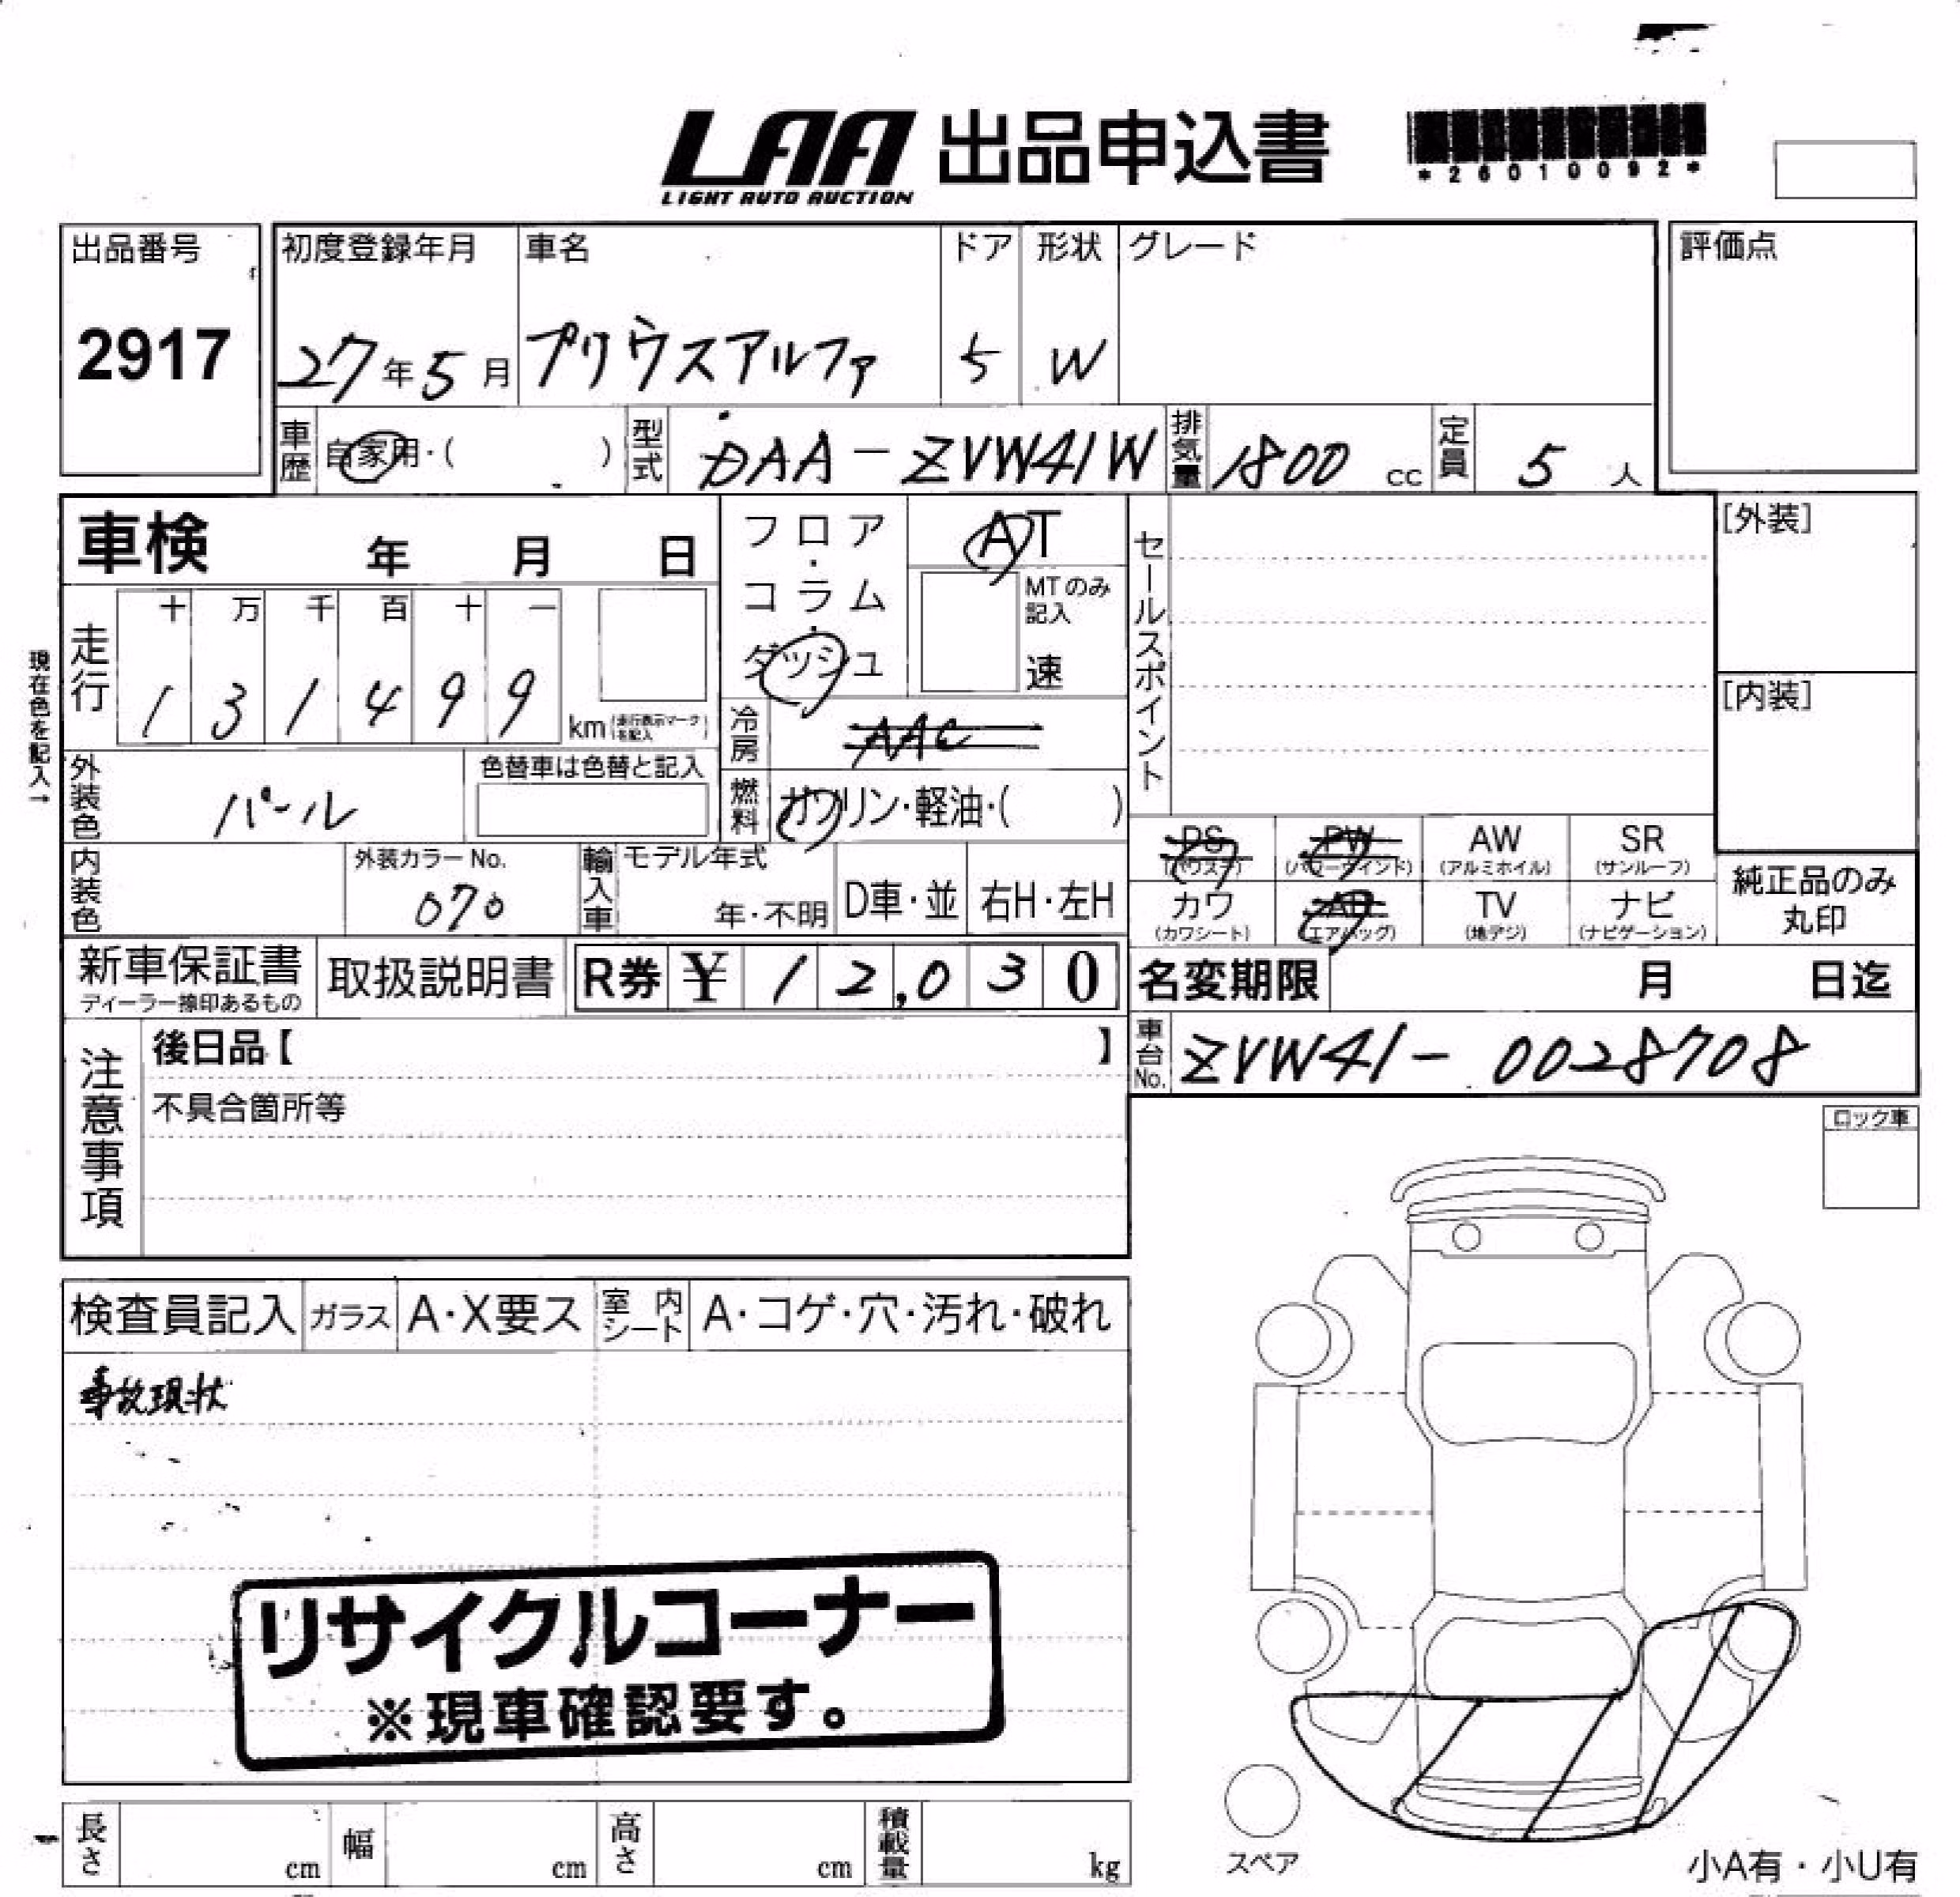 LAA 出品申込書
LIGHT AUTO AUCTION
*26010092*
出品番号
2917
初度登録年月
27年5月
車名
プリウスアルファ
ドア
5
形状
W
グレード
評価点
車歴
自家用・( )
型式
DAA-ZVW41W
排気量
1800 cc
定員
5 人
車検 年 月 日
フロア・コラム・ダッシュ
AT
MTのみ記入
速
セールスポイント
[外装]
[内装]
現在色を記入→
走行
十 万 千 百 十 一
1 3 1 4 9 9
km (走行表示マークを記入)
冷房
AAC
燃料
ガソリン・軽油・( )
外装色
パール
色替車は色替と記入
内装色
外装カラーNo.
070
輸入車
モデル年式
年・不明
D車・並
右H・左H
PS (パワステ)
PW (パワーウインド)
AW (アルミホイル)
SR (サンルーフ)
カワ (カワシート)
AB (エアバッグ)
TV (地デジ)
ナビ (ナビゲーション)
純正品のみ丸印
新車保証書
ディーラー捺印あるもの
取扱説明書
R券 ¥ 12,030
名変期限 月 日迄
車台No.
ZVW41-0028708
注意事項
後日品【 】
不具合箇所等
ロック車
検査員記入
ガラス
A・X要ス
室内シート
A・コゲ・穴・汚れ・破れ
事故現状
リサイクルコーナー
※現車確認要す。
長さ cm
幅 cm
高さ cm
積載量 kg
スペア
小A有・小U有